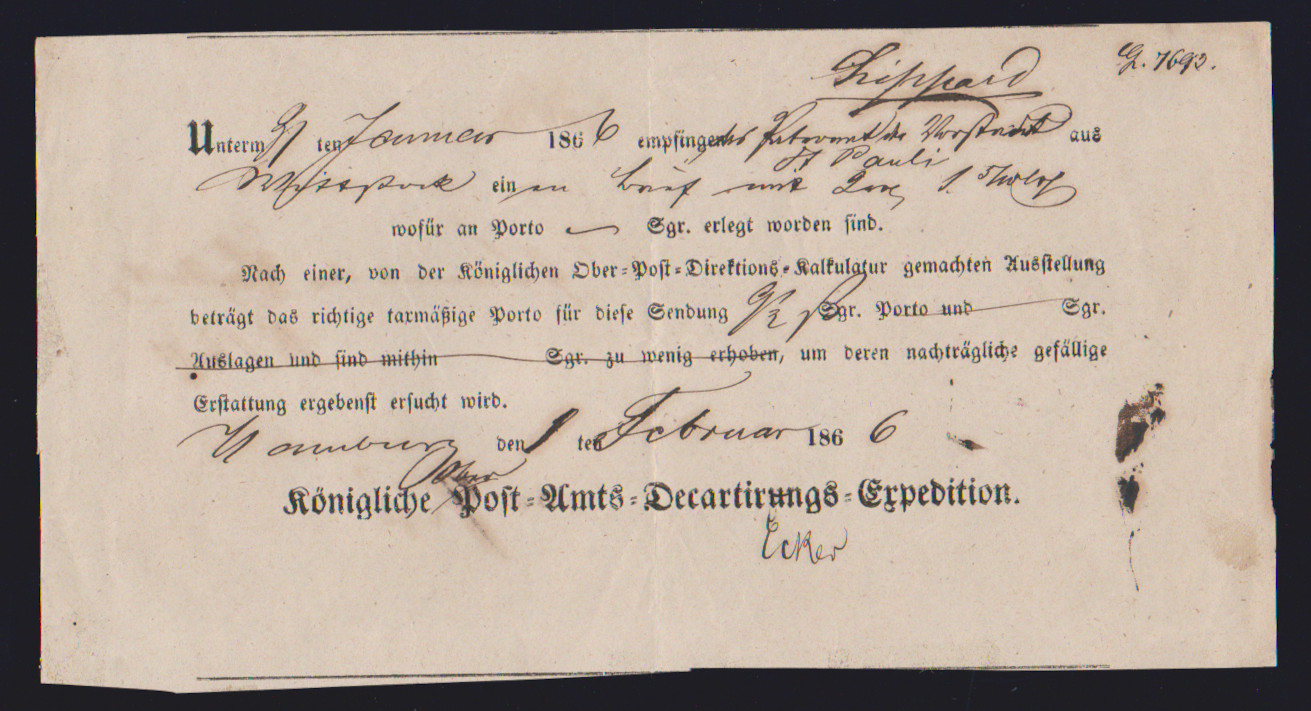 Lippard
G. 7693.
Unterm 31 ten Januar 186 6 empfing das Patronat der Vorstadt aus
St Pauli
Wittstock ein en Brief mit
wofür an Porto — Sgr. erlegt worden sind.
Nach einer, von der Königlichen Ober-Post-Direktions-Kalkulatur gemachten Ausstellung
beträgt das richtige taxmäßige Porto für diese Sendung Sgr. Porto und Sgr.
Auslagen und sind mithin Sgr. zu wenig erhoben, um deren nachträgliche gefällige
Erstattung ergebenst ersucht wird.
Hamburg den 1 ten Februar 186 6
Ober
Königliche Post-Amts-Decartirungs-Expedition.
Ecker